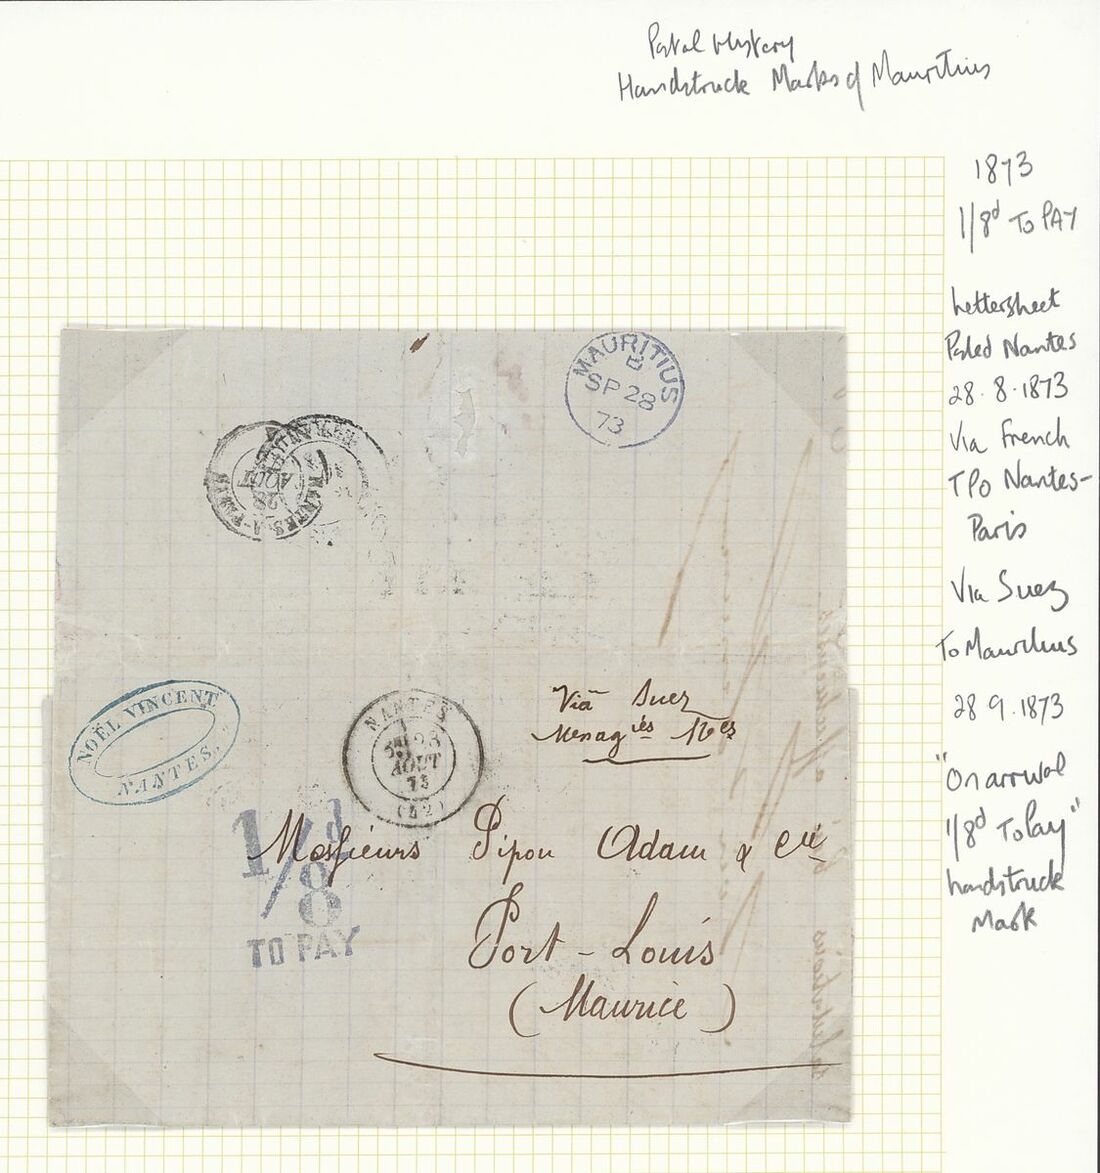 Postal History
Handstruck Marks of Mauritius
1873
1/8d To PAY
Lettersheet
Posted Nantes
28.8.1873
Via French
TPO Nantes-
Paris
Via Suez
To Mauritius
28 9.1873
"On arrival
1/8d To Pay"
handstruck
Mark
MAURITIUS
B
SP 28
73
28
AOUT
NANTES-A-
NOËL VINCENT
NANTES.
NANTES
28
AOUT
73
(42)
Via Suez
Messieurs Pipon Adam & Cie
Port-Louis
(Maurice)
1/8d
TO PAY